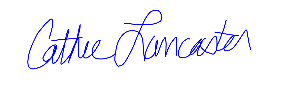 Cathie Lancaster